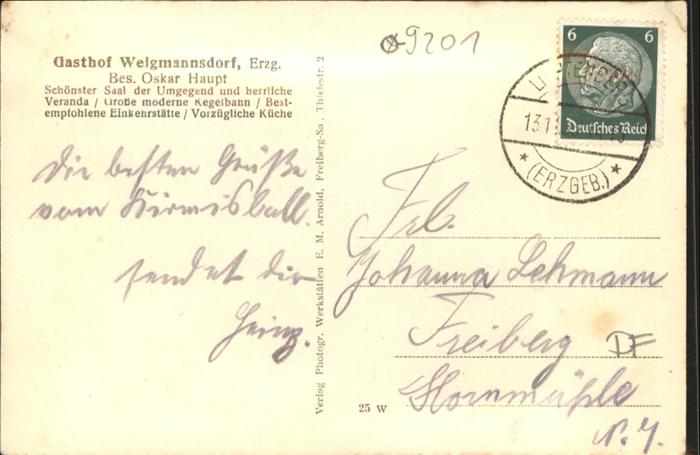 Gasthof Weigmannsdorf, Erzg.
Bes. Oskar Haupt
Schönster Saal der Umgegend und herrliche
Veranda / Große moderne Kegelbahn / Best-
empfohlene Einkehrstätte / Vorzügliche Küche
9201
6 6
Deutsches Reich
(ERZGEB.)
Die besten Grüße
vom Kirmisball.
sendet dir
Heinz.
Verlag Photogr. Werkstätten E. M. Arnold, Freiberg-Sa., Thielestr. 2
25 W
Frl.
Johanna Lehmann
Freiberg
DF
Hornmühle